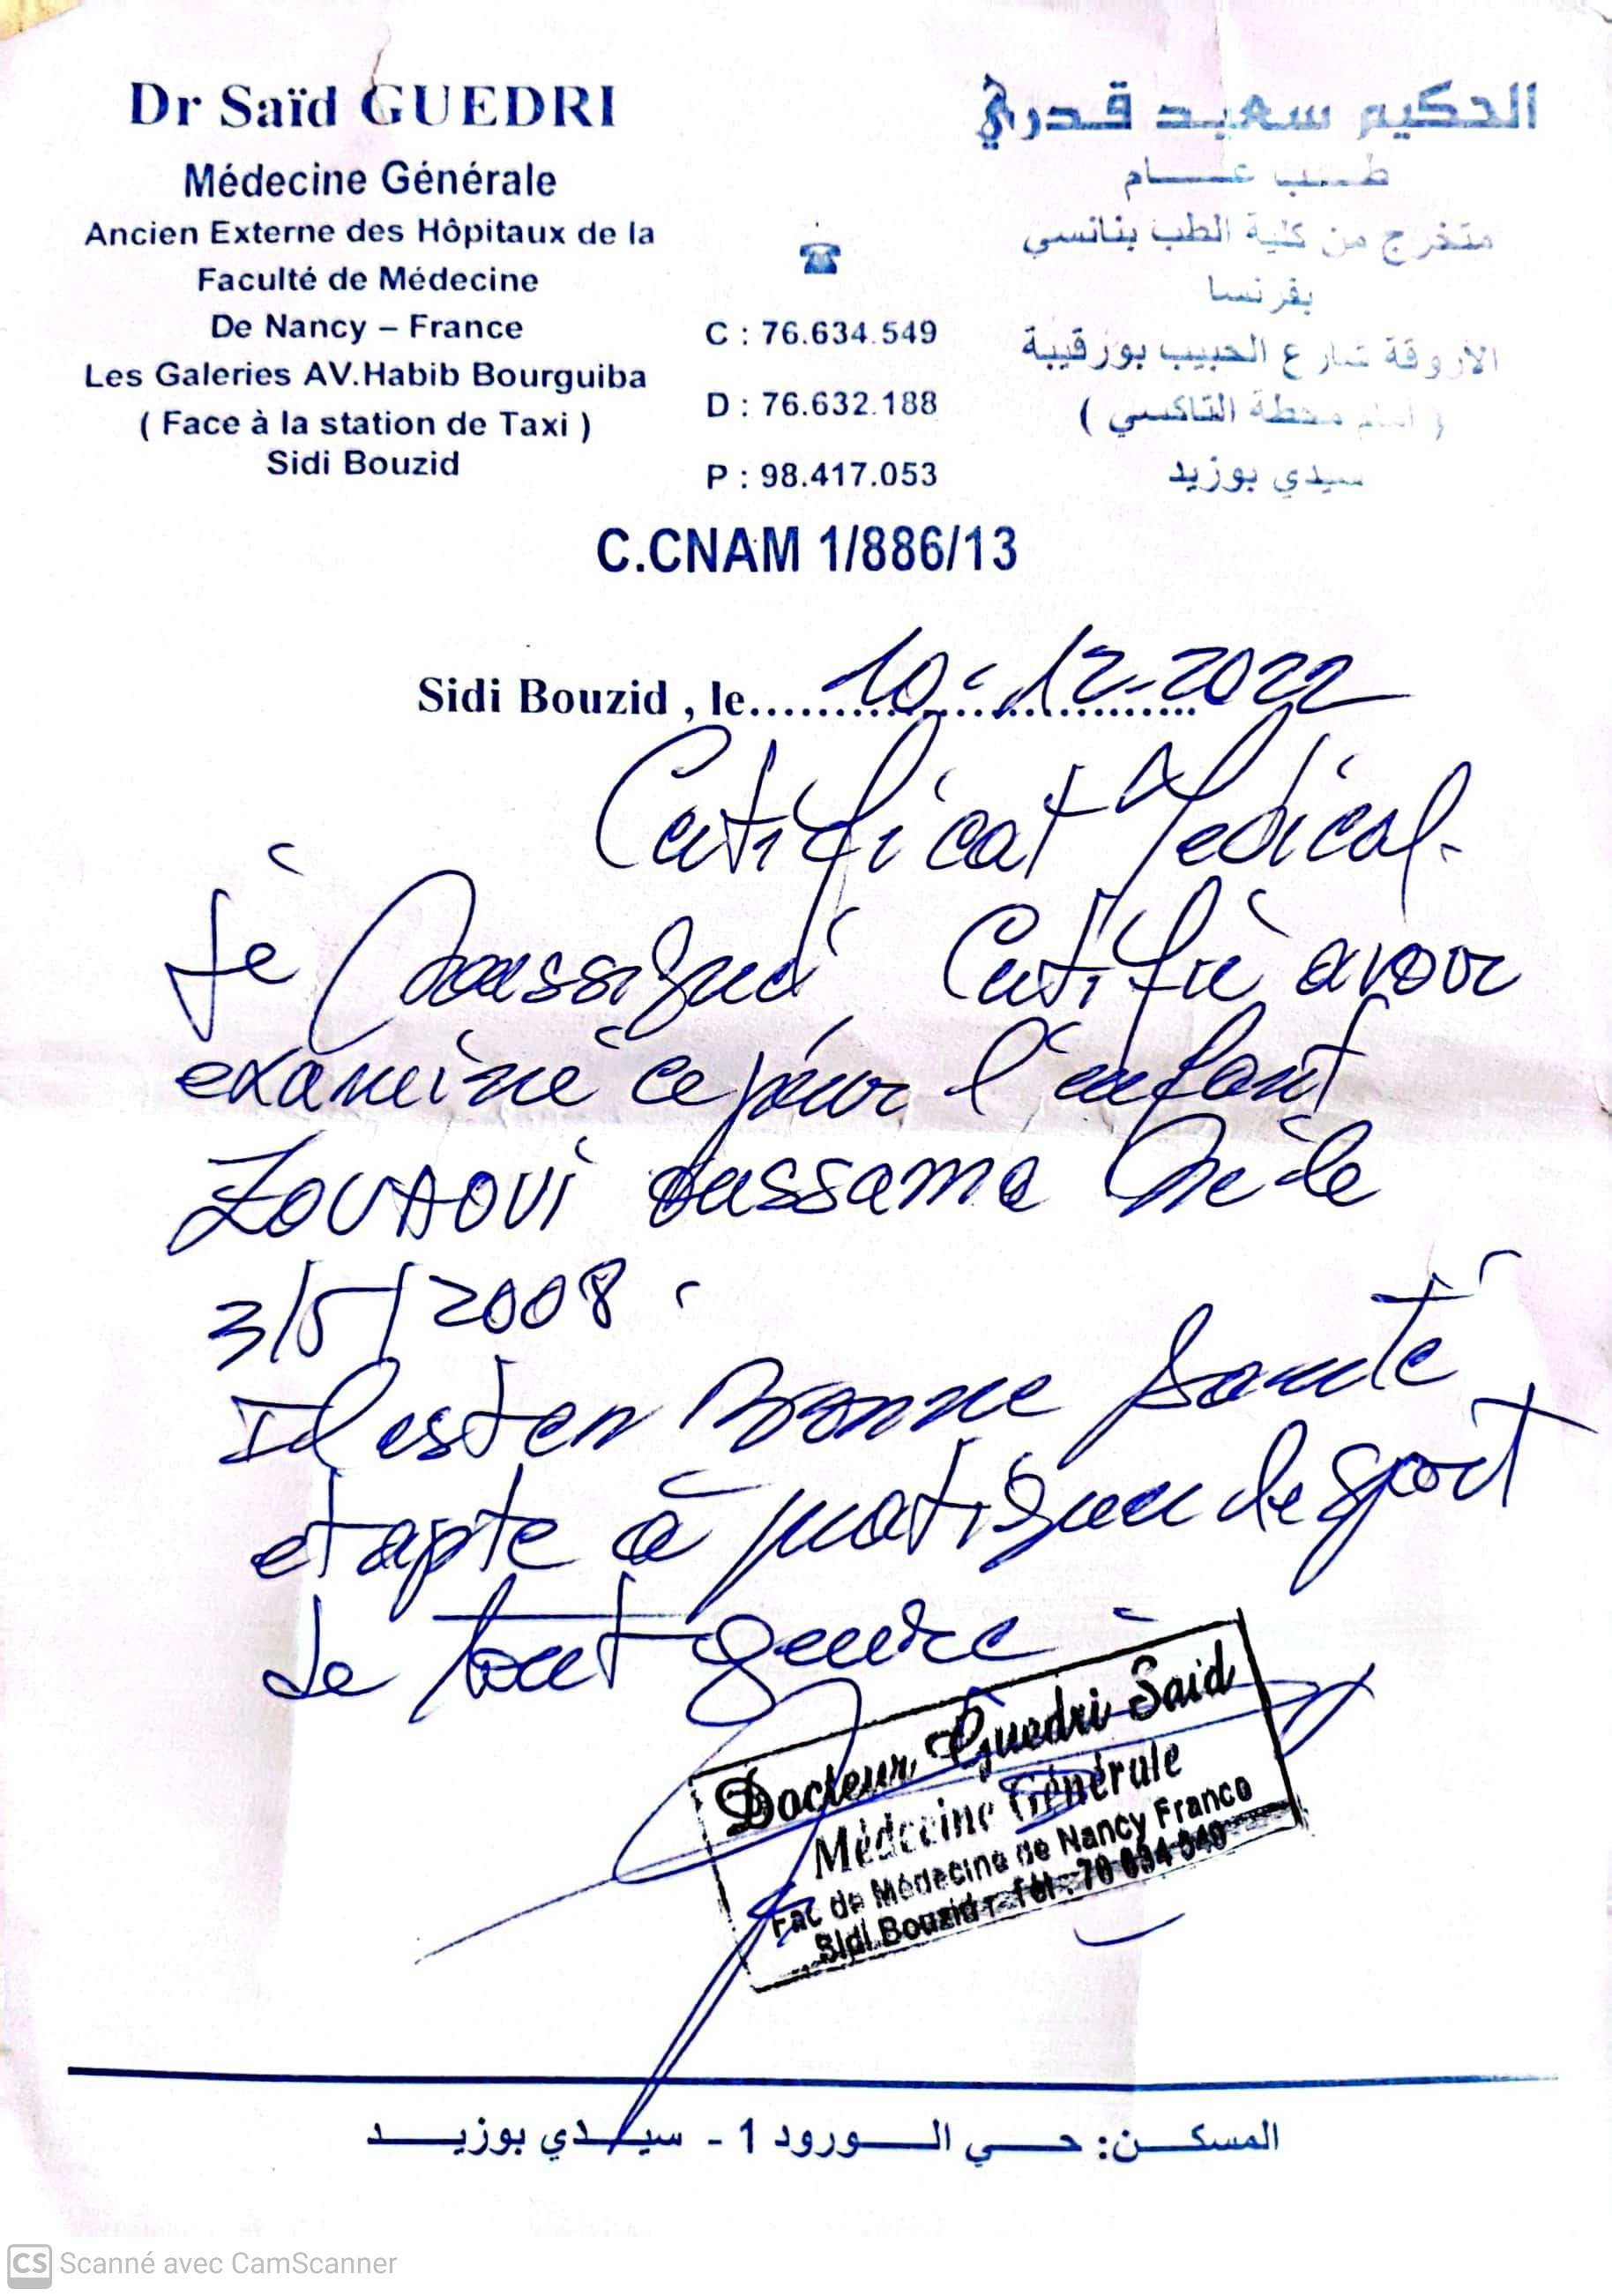 Dr Saïd GUEDRI
Médecine Générale
Ancien Externe des Hôpitaux de la
Faculté de Médecine
De Nancy – France
Les Galeries AV.Habib Bourguiba
( Face à la station de Taxi )
Sidi Bouzid
☎
C : 76.634.549
D : 76.632.188
P : 98.417.053
الحكيم سعيد قدري
طبيب عام
متخرج من كلية الطب بنانسي
بفرنسا
الأروقة شارع الحبيب بورقيبة
( أمام محطة التاكسي )
سيدي بوزيد
C.CNAM 1/886/13
Sidi Bouzid , le 10-12-2022
Certificat Médical.
Je soussigné Certifie avoir
examiné ce jour l'enfant
ZOUAOUI oussama Né le
3/5/2008.
Il est en Bonne santé
et apte à pratiquer le sport
de tout genre
Docteur Guedri Said
Médecine Générale
Fac de Médecine de Nancy France
Sidi Bouzid - Tél : 76 634 549
المسكن: حي الورود 1 - سيدي بوزيد
CS Scanné avec CamScanner